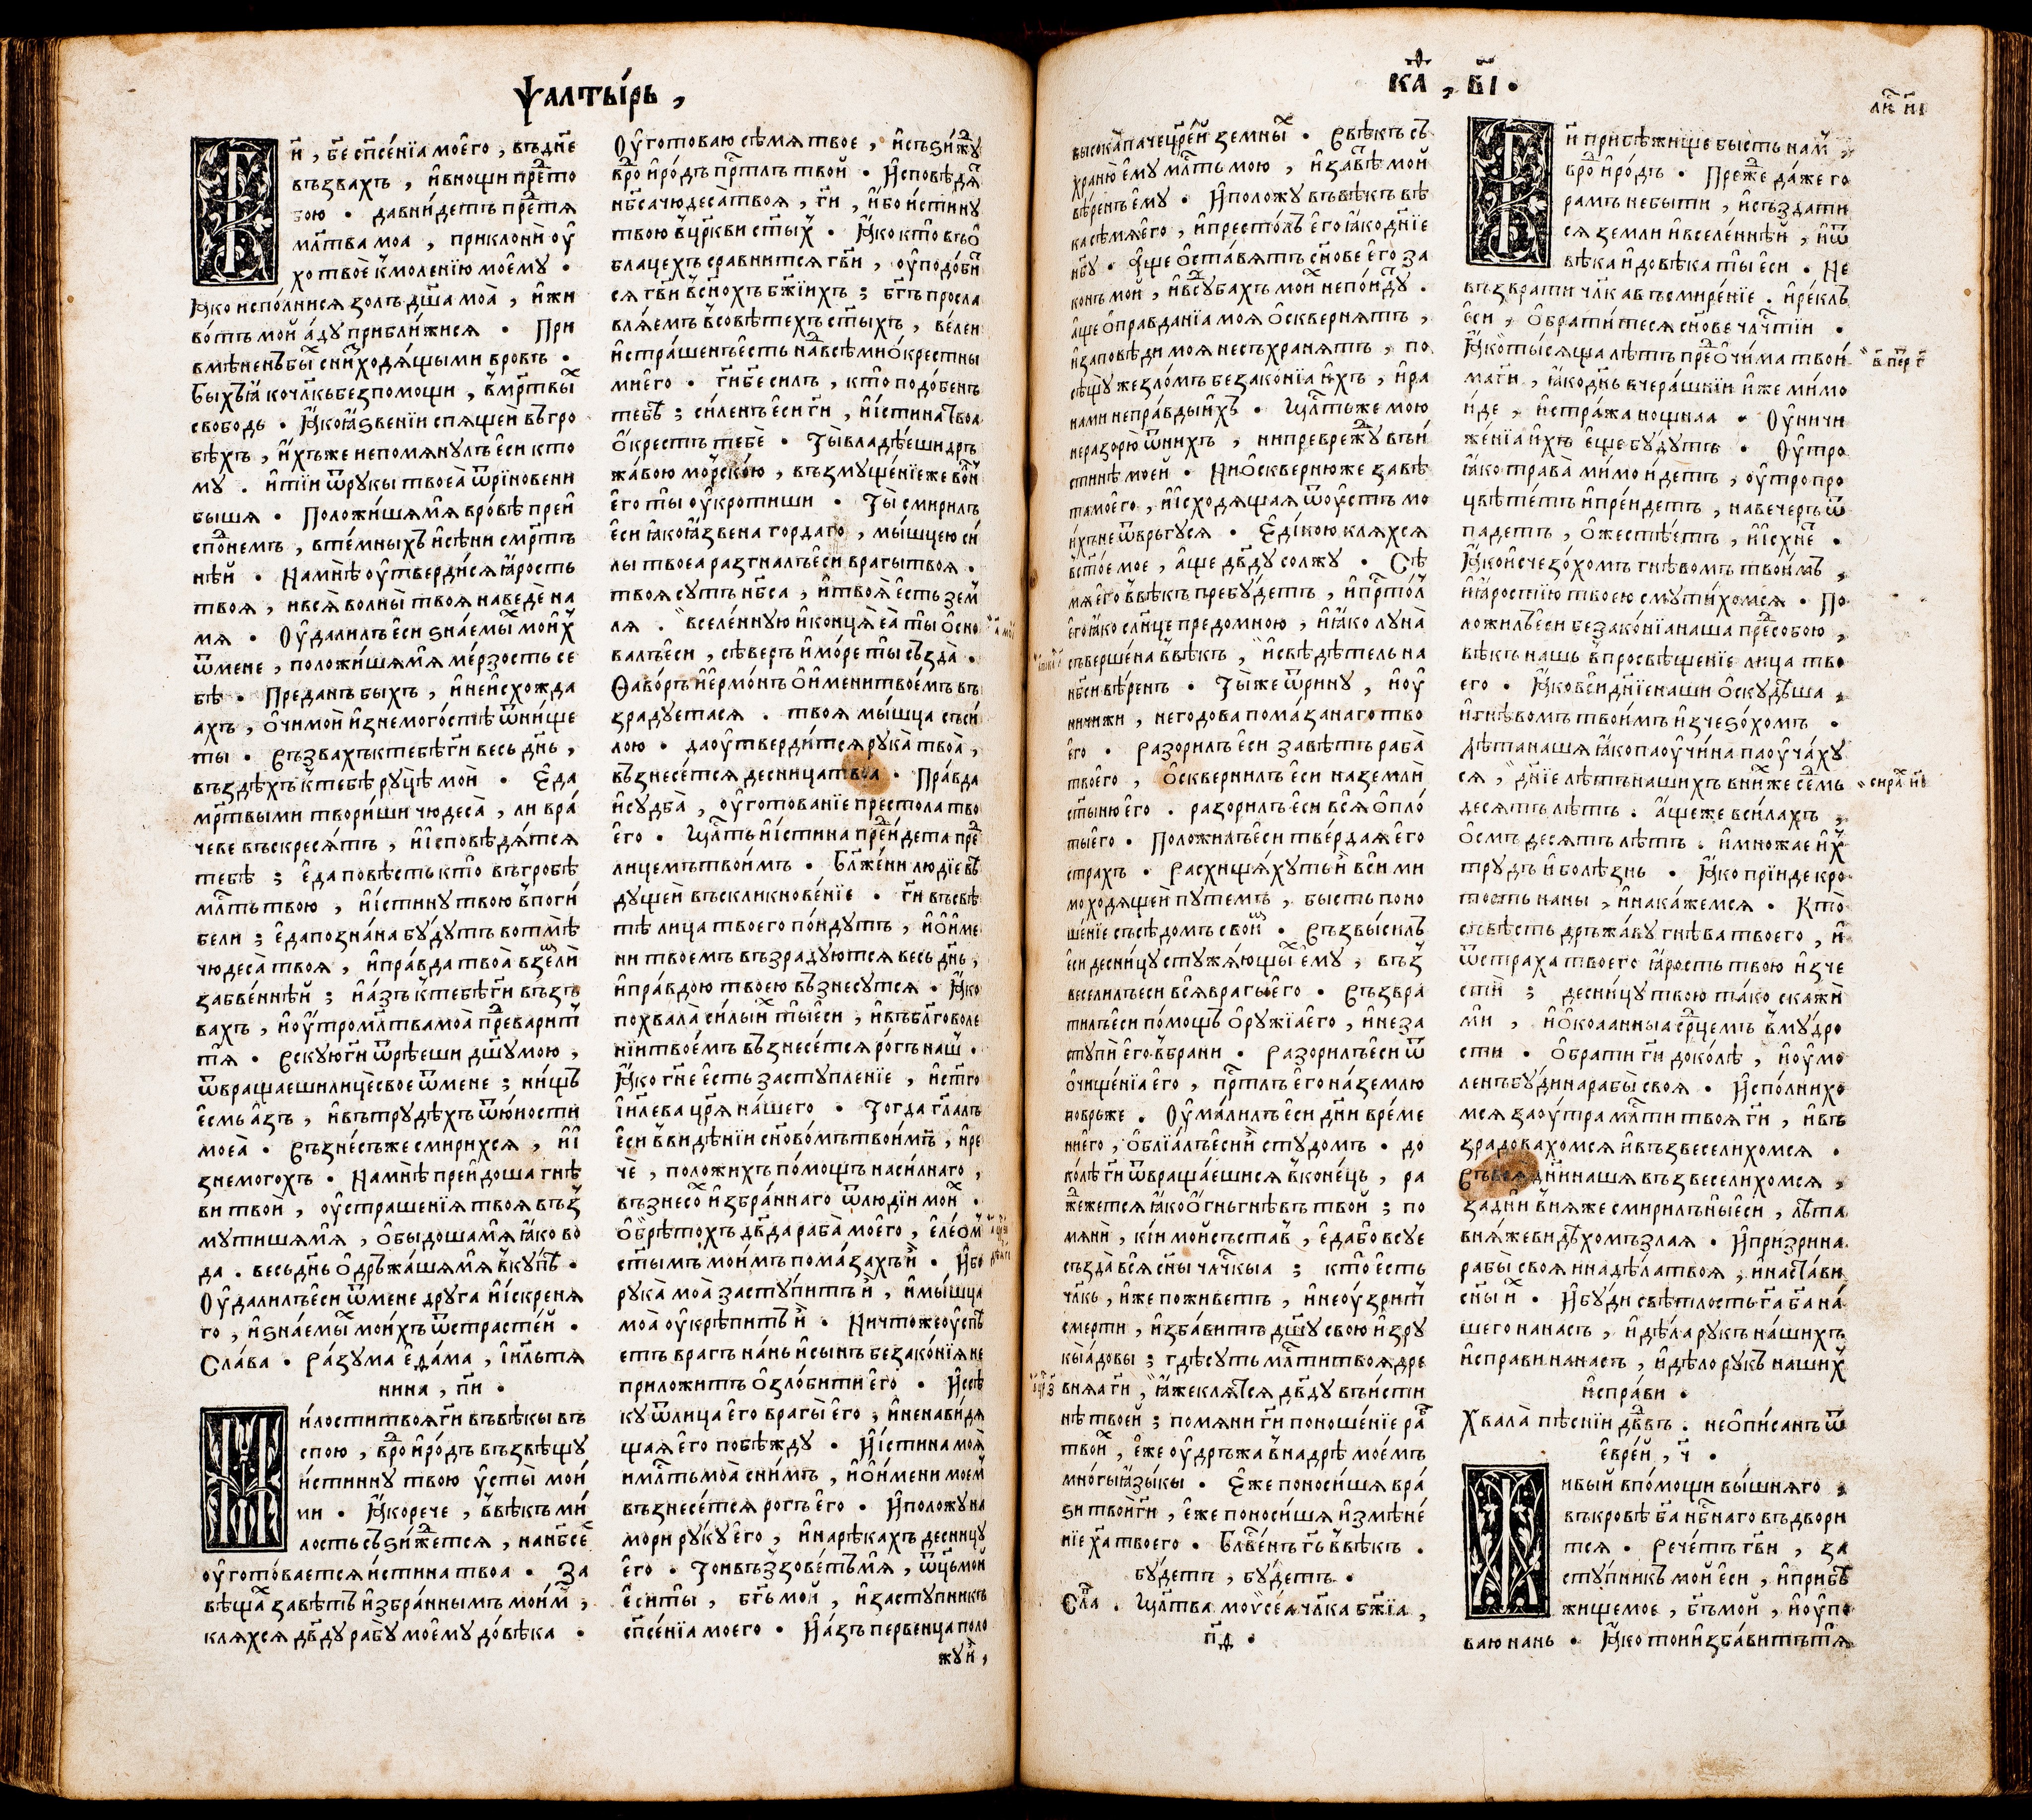 Ѱалты́рь ,
Г҃и , бе҃ сп҃се́нїа моего̀ , въ дн҃е
възвахъ , и в нощи пред то
бою . да вни́детъ пред тя
мл҃тва моа , приклонѝ оу
хо твоѐ к моленїю моему .
Яко испо́лнися золъ дш҃а моа̀ , и жи
во́тъ мой а́ду прибли́жися . При
вмѣненъ бы́х с ни́зходя́щыми в ровъ .
Бы́хъ я́ко чл҃къ без помощи , в мр҃твых
свободь . Яко я́звенїи спящей въ гро
бѣхъ , и́хъже не помянулъ еси кто
му . и тїи ѿ рукы твоеа̀ ѿрїновени
бышя . Положи́шя мя в ро́вѣ преи
спо́днемъ , в те́мныхъ и сѣни смр҃тъ
нѣй . На мнѣ оутверди́ся я́рость
твоя , и вся̀ волны̀ твоя наведѐ на
мя . Оудалилъ еси знае́мых мои́х
ѿ мене , положи́шя мя ме́рзость се
бѣ . Преданъ быхъ , и не исхожда
ахъ , о́чи мои изнемого́стѣ ѿ ни́ще
ты . Възвахъ к тебѣ ги҃ весь дн҃ь ,
въздѣхъ к тебѣ ру́цѣ мои . Еда
мр҃твыми твори́ши чюдеса̀ , ли вра́
чеве въскреся́тъ , и исповѣдятся
тебѣ ; еда повѣсть кто̀ въ гробѣ
мл҃ть твою , и и́стину твою в поги́
бели ; еда познана бу́дутъ во тмѣ
чюдеса̀ твоя , и пра́вда твоа̀ в землѝ
забве́ннѣй ; и а́зъ к тебѣ ги҃ възъ
вахъ , и оутро мл҃тва моа̀ предваритъ
тя . Въскую ги҃ ѿрѣеши дш҃у мою ,
ѿвращаеши лицѐ свое ѿ мене ; ни́щъ
есмь азъ , и въ трудѣхъ ѿ ю́ности
моеа̀ . Възне́съ же смирихся , и и
знемогохъ . На мнѣ преидоша гнѣ
ви твои , оустрашенїя твоя въз
мутишя мя , обыдоша мя яко во
да . весь дн҃ь одръжа́шя мя в ку́пѣ .
Оудалилъ еси ѿ мене друга и и́скреня
го , и знае́мых мои́хъ ѿ страсте́й .
Сла́ва . Ра́зума еда́ма , ӏи҃льтя
нина , пи҃ .
Ми́лости твоя ги҃ въ вѣкы въ
спою , в род и ро́дъ възвѣщу
и́стинну твою у́сты̀ мои
ми . Яко рече , в вѣкъ ми́
лость съзи́ждется , на нб҃се
оугото́вается и́стина твоа . За
вѣща́х завѣтъ избра́ннымъ мои́м ;
кляхся дв҃ду рабу моему до́вѣка .
Оуготоваю сѣмя твое , и съзи́жду
в род и ро́дъ пр҃тлъ твой . Исповѣдят
нб҃са чюдеса твоя , ги҃ , ибо и́стину
твою в цр҃кви ст҃ых . Яко кто̀ въ о
блацехъ сравнится гв҃и , оуподо́би
ся гв҃и в сн҃охъ бж҃їихъ ; бг҃ъ просла
вля́емъ в совѣтехъ ст҃ыхъ , ве́леи
и стра́шенъ есть на́д всѣми окрестны
ми его . ги҃ бе҃ силъ , кто̀ подо́бенъ
тебѣ ; си́ленъ еси ги҃ , и и́стина твоа
окрестъ тебѐ . Ты̀ владѣеши дръ
жа́вою мо́рско́ю , възмуще́нїе же во́лн
его ты оукротиши . Ты̀ смирилъ
еси яко я́звена гордаго , мы́шцею си́
лы твоеа разгналъ еси врагы твоя .
твоя суть нб҃са , и твоя̀ есть зем
ля . вселе́нную и конця̀ еа̀ ты осно
валъ еси , сѣверъ и мо́ре ты създа̀ .
Ѳаво́ръ и ермо́нъ о имени твое́мъ въ
зрадуетася . твоя мы́шца съ си́
лою . да оутверди́тся рука̀ твоа̀ ,
възнесе́тся десница твоа . Пра́вда
и судба̀ , оуготованїе престола тво
его . Мл҃ть и и́стина предидета пред
лицемъ твоимъ . Блж҃е́ни людїе вѣ
дущей въскликнове́нїе . ги҃ въ свѣ
тѣ лица твоего по́идутъ , и о име
ни твоемъ възрадуются весь дн҃ь ,
и пра́вдою твоею възнесутся . Яко
похвала̀ си́лы их ты еси , и въ бл҃говоле
нїи твое́мъ възнесе́тся ро́гъ наш .
Яко гн҃е есть заступленїе , и ст҃го
ӏи҃лева цр҃я на́шего . Тогда гл҃алъ
еси в видѣнїи сн҃ово́мъ твои́мъ , и ре
чѐ , положихъ по́мощъ на си́лнаго ,
възнесо́х избра́ннаго ѿ людїи мои́х .
О́брѣтохъ дв҃да раба̀ моего , еле́ом
ст҃ымъ мои́мъ пома́захъ и . Ибо
рука̀ моа̀ засту́питъ и , и мы́шца
моа̀ оукрѣпитъ и . Ничтоже оуспѣ
етъ врагъ на́нь и сынъ безако́нїя не
приложитъ озло́бити его . И ссѣ
ку ѿ лица его врагы̀ его ; и ненави́дя
щая его побѣжду . И и́стина моя̀
и мл҃ть моа̀ с ни́мъ , и о и́мени моем
възнесе́тся рогъ его . И положу на
мори ру́ку его , и на рѣкахъ десницу
его . То́и възовѐтъ мя , ѿц҃ь мой
еси ты , бг҃ъ мой , и заступникъ
сп҃се́нїа моего . И а́зъ первенца поло
жу и ,
Ка҃ѳ , в҃ӏ .
высока паче цр҃е́й земны́х . В вѣкъ съ
храню̀ ему мл҃ть мою , и завѣ́т мой
вѣ́ренъ ему . И положу въ вѣкъ вѣ
ка сѣмя его , и престо́лъ его яко дн҃їе
нб҃у . Аще оста́вятъ сн҃ове его за
конъ мой , и в судба́хъ мои́х не по́идут .
аще оправданїа моя оскверня́тъ ,
и заповѣди моя не съхраня́тъ , по
сѣщу же зло́мъ безако́нїа ихъ , и ра
нами непра́вды ихъ . Мл҃ть же мою
не разорю ѿ нихъ , ни превре́жду въ и́
стинѣ моей . Ни оскверню же завѣ
та моего , и исходящая ѿ оустъ мо
и́хъ не ѿвръгуся . Еди́ною кляхся
в ст҃ое мое , аще дв҃ду солжу . Сѣ
мя его в вѣкъ пребу́детъ , и пр҃то́л
его яко сл҃нце предо мною , и я́ко луна̀
съверше́на в вѣкъ , и свѣдѣтель на
нб҃си вѣренъ . Ты́ же ѿрину , и оу
ничижи , негодова пома́занаго тво
его . Разорилъ еси завѣтъ раба̀
твоего , осквернилъ еси на землѝ
ст҃ыню его . разорилъ еси вся опло́
ты его . Положилъ еси тве́рдая его
страхъ . Расхищя́хуть и вси ми
моходящей путемъ , бысть поно
ше́нїе сусѣдомъ свои́м . Възвы́силъ
еси десни́цу стужя́ющых ему , въз
веселилъ еси вся врагы его . Възвра
тилъ еси по́мощъ оружїа его , и не за
ступѝ его в брани . Разорилъ еси ѿ
очище́нїа его , пр҃тлъ его на́ землю
повръже . Оума́лилъ еси дн҃и вре́ме
ни его , облїа́лъ еси и студомъ . до
ко́лѣ ги҃ ѿвраща́ешися в коне́ць , ра
жжется яко огнь гнѣвъ твой ; по
мянѝ , кїй мой съста́в , еда́ бо в суе
създа̀ вся сн҃ы чл҃чкыа ; кто̀ есть
чл҃къ , иже поживетъ , и не оузритъ
смерти , изба́витъ дш҃у свою и зру
кы а́довы ; гдѣ суть мл҃ти твоя дре
вняа ги҃ , яже клятся дв҃ду въ и́сти
нѣ твоей ; помяни ги҃ поноше́нїе раб
твои́х , еже оудръжа в на́дрѣ мое́мъ
мно́гы языкы . Еже поноси́шя вра́
зи твои ги҃ , еже поноси́шя измѣне́
нїе ха҃ твоего . Блв҃е́нъ гь҃ в вѣкъ .
бу́детъ , бу́детъ .
Сла . Мл҃тва моѵсе́а чл҃ка бж҃їа ,
п҃ѳ .
Г҃и прибѣ́жище бысть нам ,
в род и ро́дъ . Преже да́же го
рамъ не быти , и създати
ся земли и вселе́ннѣй , и ѿ
вѣка и до вѣка ты еси . Не
възврати чл҃ка въ смире́нїе . и ре́клъ
еси , обрати́теся сн҃ове чл҃чтїи .
Яко ты́сяща лѣтъ пред очи́ма твои
ма ги҃ , яко дн҃ь вчера́шнїи иже мимо
и́де , и стра́жа нощная . Оуничи
же́нїа ихъ еще бу́дутъ . Оутро
яко трава̀ ми́мо и́детъ , оутро про
цвѣте́тъ и пре́идетъ , на вечеръ ѿ
падетъ , ожестѣ́етъ , и и́схнет .
Яко исчезо́хомъ гнѣвомъ твои́мъ ,
и я́ростїю твоею смути́хомся . По
ложилъ еси безако́нїа наша пред собою ,
вѣкъ нашь в просвѣще́нїе лица тво
его . Яко вси дн҃їе наши оскудѣша ,
и гнѣвомъ твои́мъ изчезо́хомъ .
Лѣта наша яко паоучи́на паоуча́ху
ся , дн҃їе лѣтъ нашихъ в ни́хже се́мъ
десятъ лѣтъ . а́ще же в си́лахъ ,
о́смъ десятъ лѣтъ . и множае и́х
трудъ и болѣ́знь . Яко прїиде кро
тость на ны , и нака́жемся . Кто̀
съвѣсть дръжа́ву гнѣва твоего , и
ѿ страха твоего я́рость твою изче
стѝ ; десни́цу твою та́ко скажѝ
мѝ , и окоаанныа ср҃дцемъ в му́дро
сти . обрати ги҃ доко́лѣ , и оумо
ленъ бу́ди на рабы̀ своя . Испо́лнихо
мся заоутра мл҃ти твоя ги҃ , и въ
зрадовахомся и възвеселихомся .
Въ вся дн҃и нашя възвеселихомся ,
за дн҃и в няже смирилъ ны еси , лѣта
в няже видѣхомъ злая . И призри на
рабы̀ своя и на дѣла твоя , и наста́ви
сн҃ы их . И бу́ди свѣтлость га҃ ба҃ на́
шего на насъ , и дѣла рукъ нашихъ
исправи на насъ , и дѣло рукъ наших
испра́ви .
Хвала̀ пѣснїи дв҃двъ . не описанъ ѿ
евре́й , ч҃ .
Живый в по́мощи вы́шняго ,
въ кровѣ ба҃ нб҃наго въдвори
тся . Рече́тъ гв҃и , за
ступникъ мой еси , и прибѣ
жище мое , бг҃ъ мой , и оупо
ваю на нь . Яко то́й изба́витъ тя